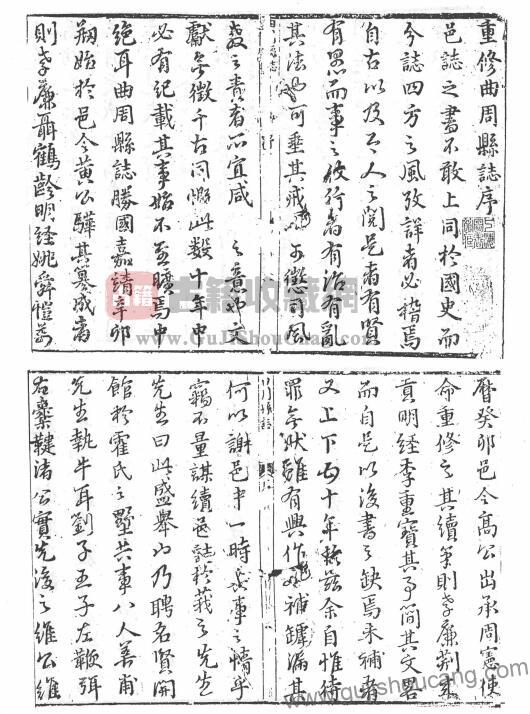 重修曲周縣誌序
邑誌之書不敢上同於國史而
今誌四方之風攷詳者必稽焉
自古以及今人之閱是者有賢
有愚而事之彼行者有治有亂
其法也可垂其戒也可懲司風
教之責者所宜咸 之意也文
獻無徵千古同慨此數十年中
必有記載其事始不至曠焉中
絕耳曲周縣誌勝國嘉靖辛卯
剏始於邑令黃公驊其纂成者
則孝廉聶鶴齡明經姚舜愷萬
曆癸卯邑令高公出承周憲使
命重修之其續筆則孝廉荊
貢明經李重寶其事簡其文略
而自是以後書之缺焉未補者
又上下五十年於茲余自惟待
罪無狀雖有興作以補罅漏其
何以謝邑中一時長事之情乎
竊不量謀續邑誌於莪之先生
先生曰此盛舉也乃聘名賢開
館於霍氏之墅共事八人善甫
先生執牛耳劉子王子左鞭弭
右櫜鞬諸公實先後之維公維
古籍收藏網
www.GuJiShouCang.com
www.gujishoucang.com